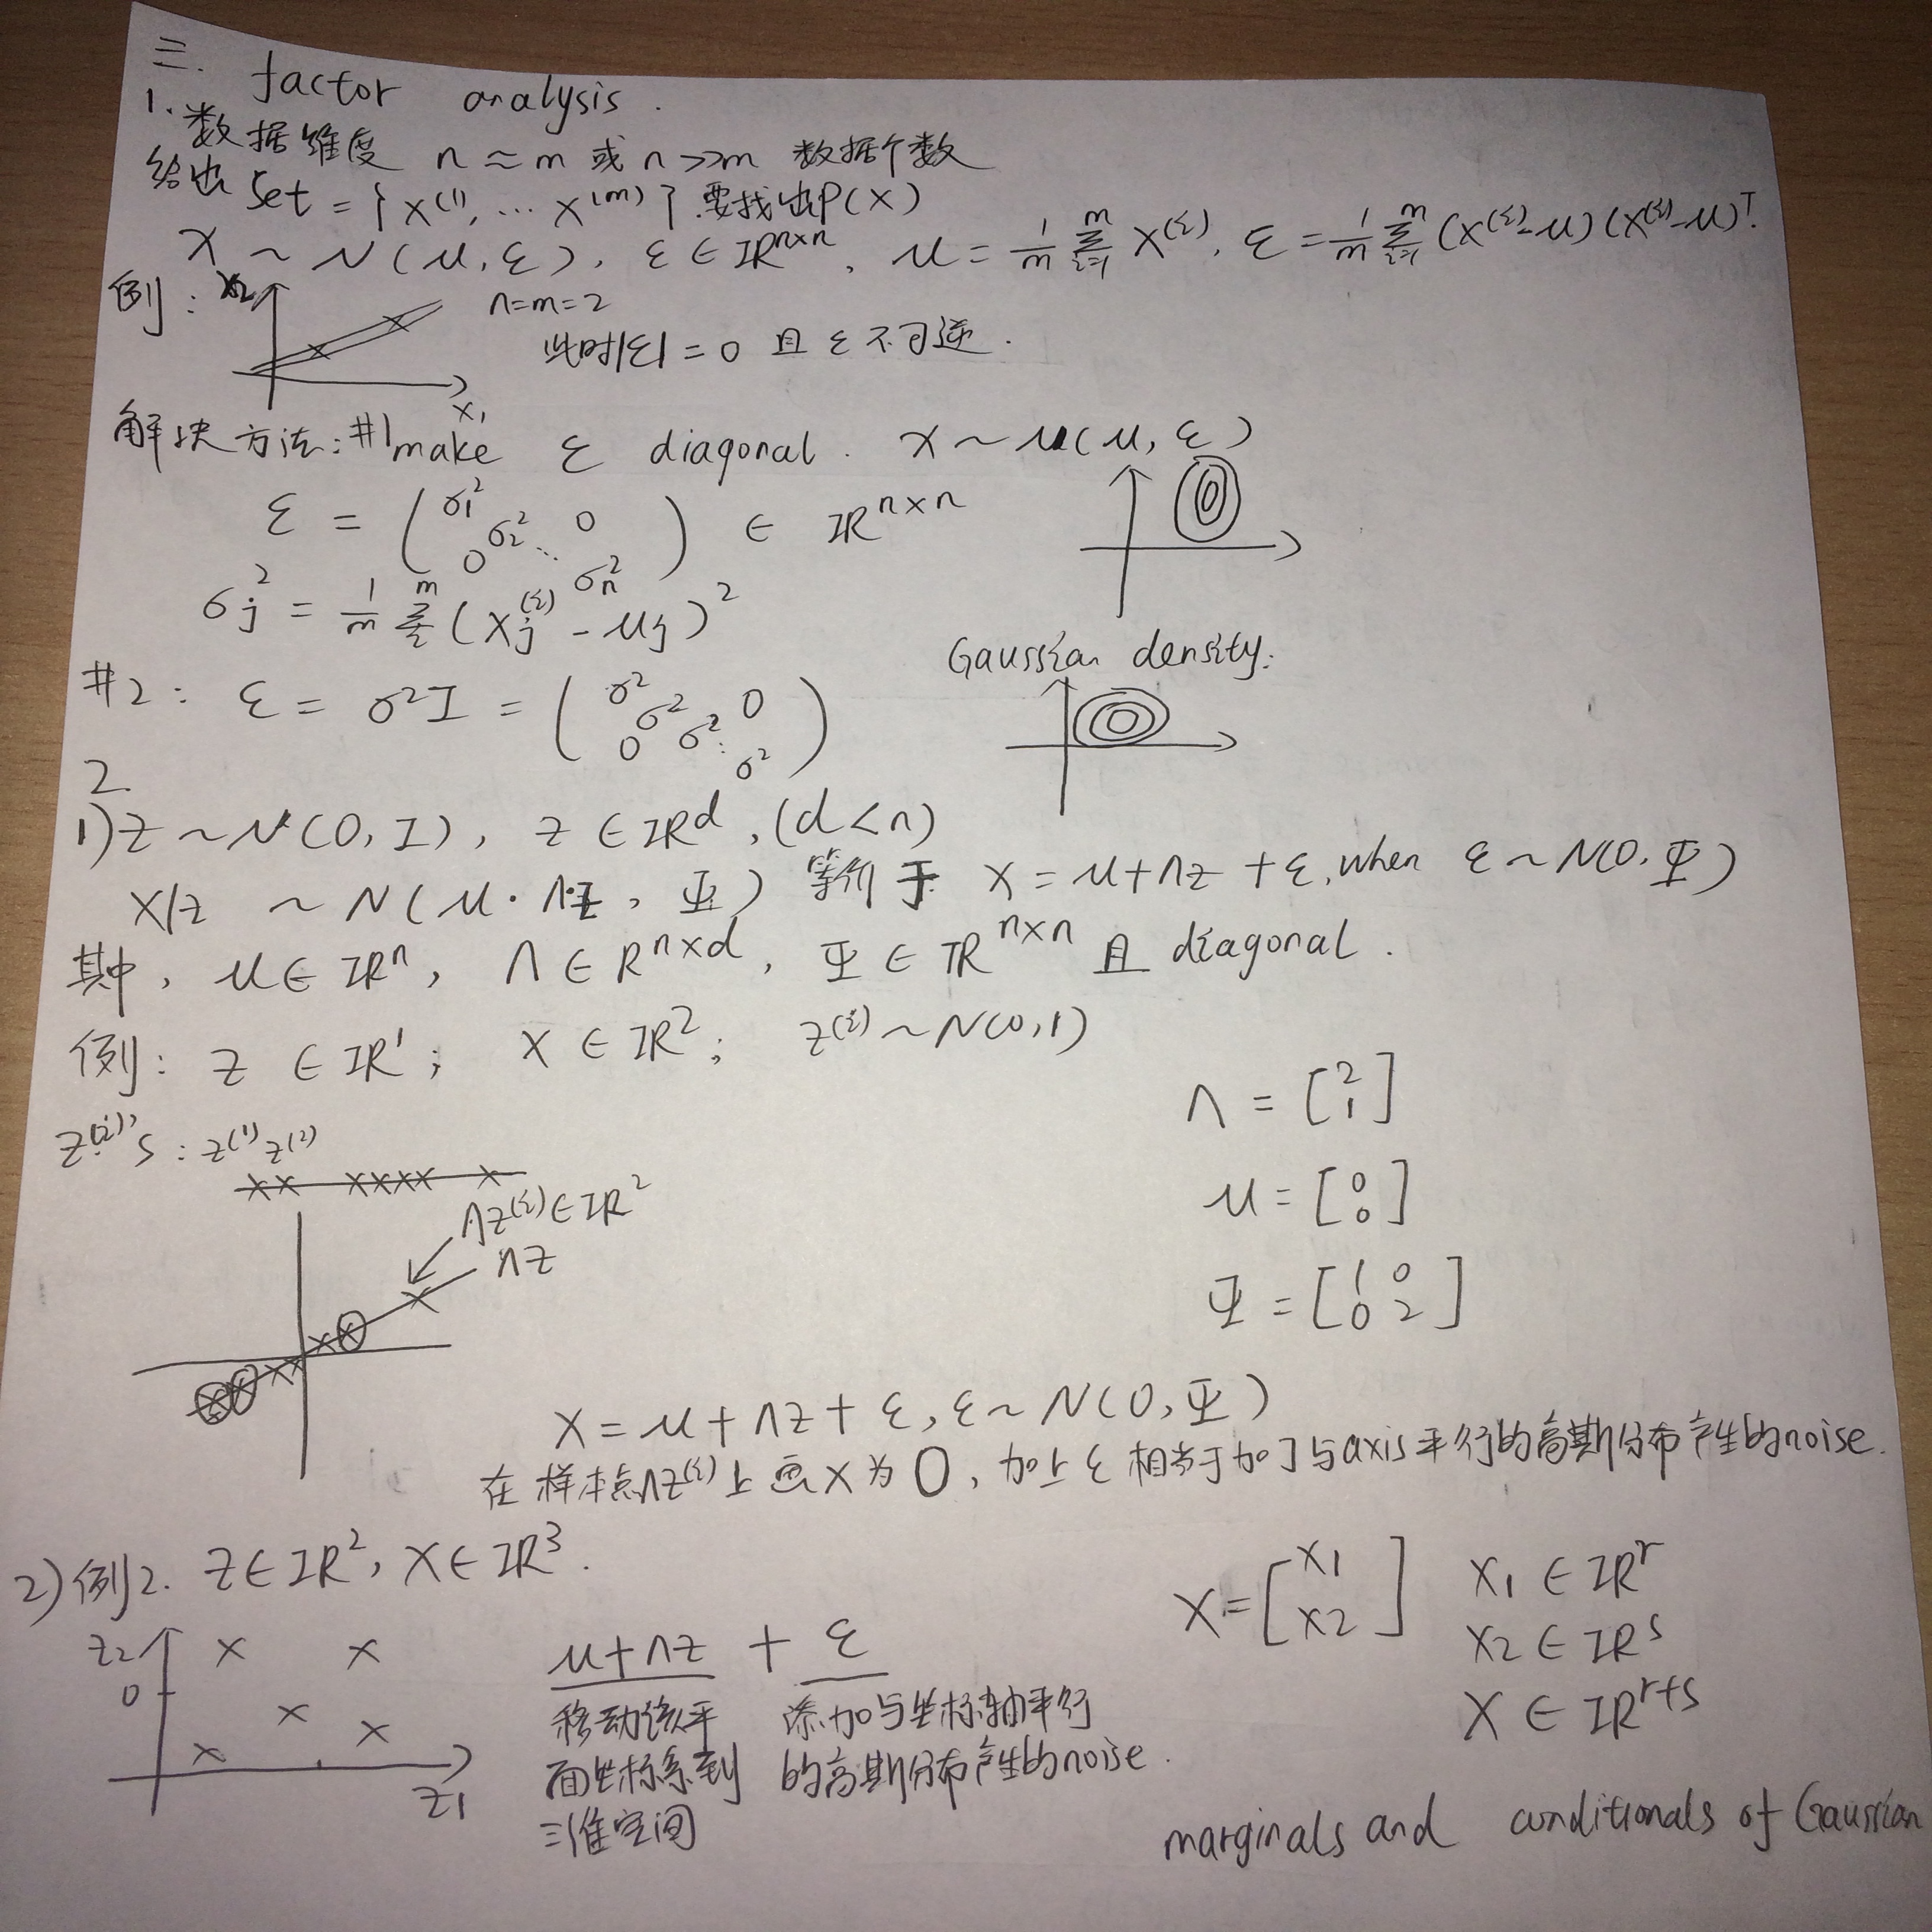 三. factor analysis.
1. 数据维度 n ≈ m 或 n >> m 数据个数
给出 Set = {x^(1), … x^(m)} 要找出P(x)
x ~ N(μ, Σ), Σ ∈ IR^{n×n}, μ = 1/m Σ_{i=1}^m x^(i), Σ = 1/m Σ_{i=1}^m (x^(i) - μ)(x^(i) - μ)^T.
例: x2
n=m=2
此时|Σ| = 0 且 Σ 不可逆.
x1
解决方法: #1 make Σ diagonal. x ~ N(μ, Σ)
Σ = ( σ1^2 σ2^2 0 0 … σn^2 ) ∈ IR^{n×n}
σj^2 = 1/m Σ_i^m (xj^(i) - μj)^2
Gaussian density:
#2: Σ = σ^2 I = ( σ^2 σ^2 0 0 σ^2 … σ^2 )
2.
1) z ~ N(0, I), z ∈ IR^d, (d < n)
x|z ~ N(μ · Λz, Ψ) 等价于 x = μ + Λz + ε, when ε ~ N(0, Ψ)
其中, μ ∈ IR^n, Λ ∈ R^{n×d}, Ψ ∈ IR^{n×n} 且 diagonal.
例: z ∈ IR^1; x ∈ IR^2; z^(i) ~ N(0, 1)
Λ = [2 1]
z^(i)'s: z^(1) z^(2)
μ = [0 0]
Λz^(i) ∈ IR^2
Λz
Ψ = [1 0 0 2]
x = μ + Λz + ε, ε ~ N(0, Ψ)
在样本点Λz^(i)上画x为0, 加上ε相当于加了与axis平行的高斯分布产生的noise.
2) 例2. z ∈ IR^2, x ∈ IR^3.
x = [x1 x2] x1 ∈ IR^r
x2 ∈ IR^s
x ∈ IR^{r+s}
z2
0
z1
μ + Λz + ε
移动该平 添加与坐标轴平行
面坐标系到 的高斯分布产生的noise.
三维空间
marginals and conditionals of Gaussian